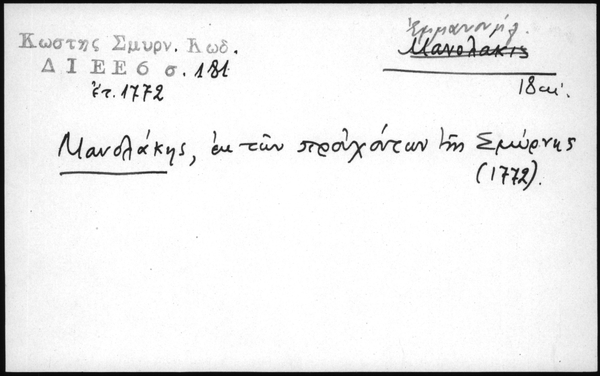 Κωστης Σμυρν. Κωδ.
ΔΙΕΕ6 σ. 181
ἔτ. 1772
Ἐμμανουήλ.
Μανολακις
18 αἰ.
Μανολάκης, ἐκ τῶν προὐχόντων τῆς Σμύρνης
(1772).